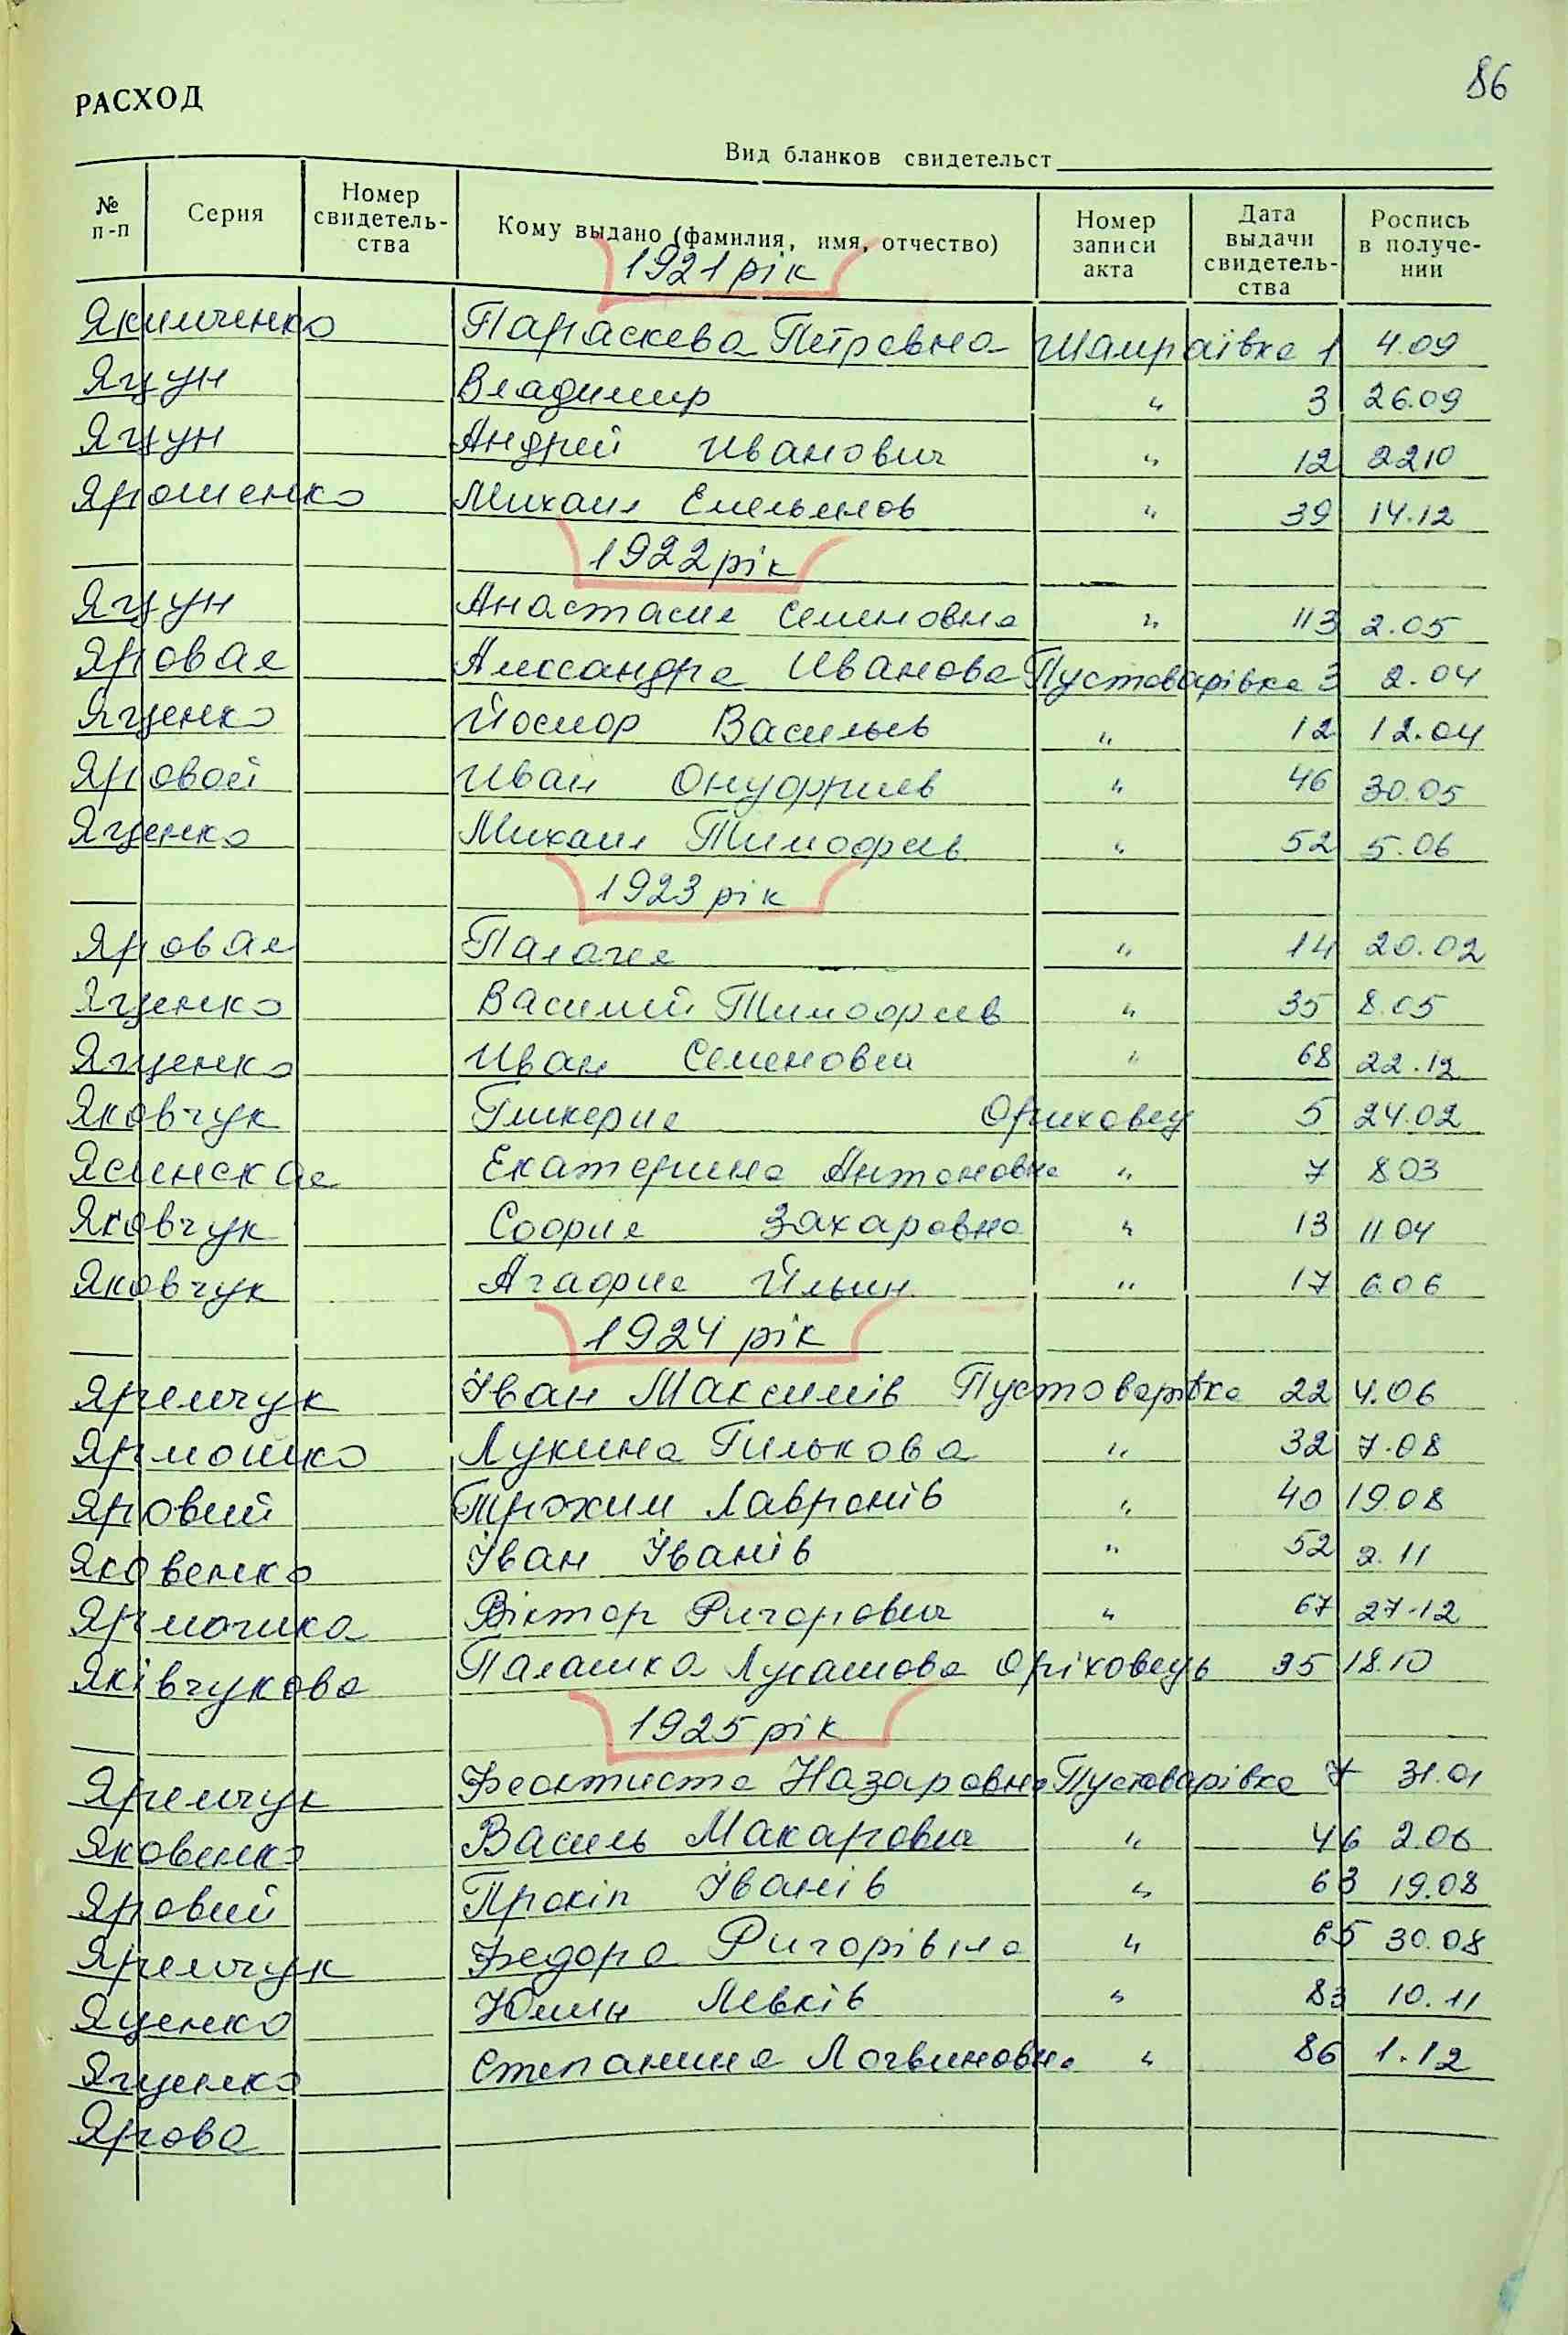 86
РАСХОД
Вид бланков свидетельст
№ п-п Серия Номер свидетель-ства Кому выдано (фамилия, имя, отчество) Номер записи акта Дата выдачи свидетель-ства Роспись в получе-нии
1921 рік
Якимченко Параскева Петровна Шамраївка 1 4.09
Яцун Владимир " 3 26.09
Яцун Андрей Иванович " 12 22 10
Ярошенко Михаил Емельянов " 39 14.12
1922 рік
Яцун Анастасия Семеновна " 113 2.05
Яровая Александра Иванова Пустоварівка 3 2.04
Яценко Васильев " 12 12.04
Яровой Иван Онуфриев " 46 30.05
Яценко Михаил Тимофеев " 52 5.06
1923 рік
Яровая Палагея " 14 20.02
Яценко Василий Тимофеев " 35 8.05
Яценко Иван Семенович " 68 22.12
Яковчук Гликерия Ориховец 5 24.02
Ясинская Екатерина Антоновна " 7 8 03
Яковчук София Захаровна " 13 11 04
Яковчук Агафия Ильин " 17 6.06
1924 рік
Яремчук Іван Максимів Пустоварівка 22 4.06
Ярмошко Лукина Гилькова " 32 7.08
Яровий Трохим Лавронів " 40 19.08
Яковенко Іван Іванів " 52 2.11
Віктор Ригорович " 67 27.12
Яківчукова Палашка Лукашова Оріховець 35 18.10
1925 рік
Яремчук Феоктиста Назаровна Пустоварівка 7 31.01
Яковенко Василь Макарович " 46 2.06
Яровий Прокіп Іванів " 63 19.08
Яремчук Федора Ригорівна " 65 30.08
Яценко Юлин Левків " 83 10.11
Яценко Степанина Логвиновна " 86 1.12
Ярова